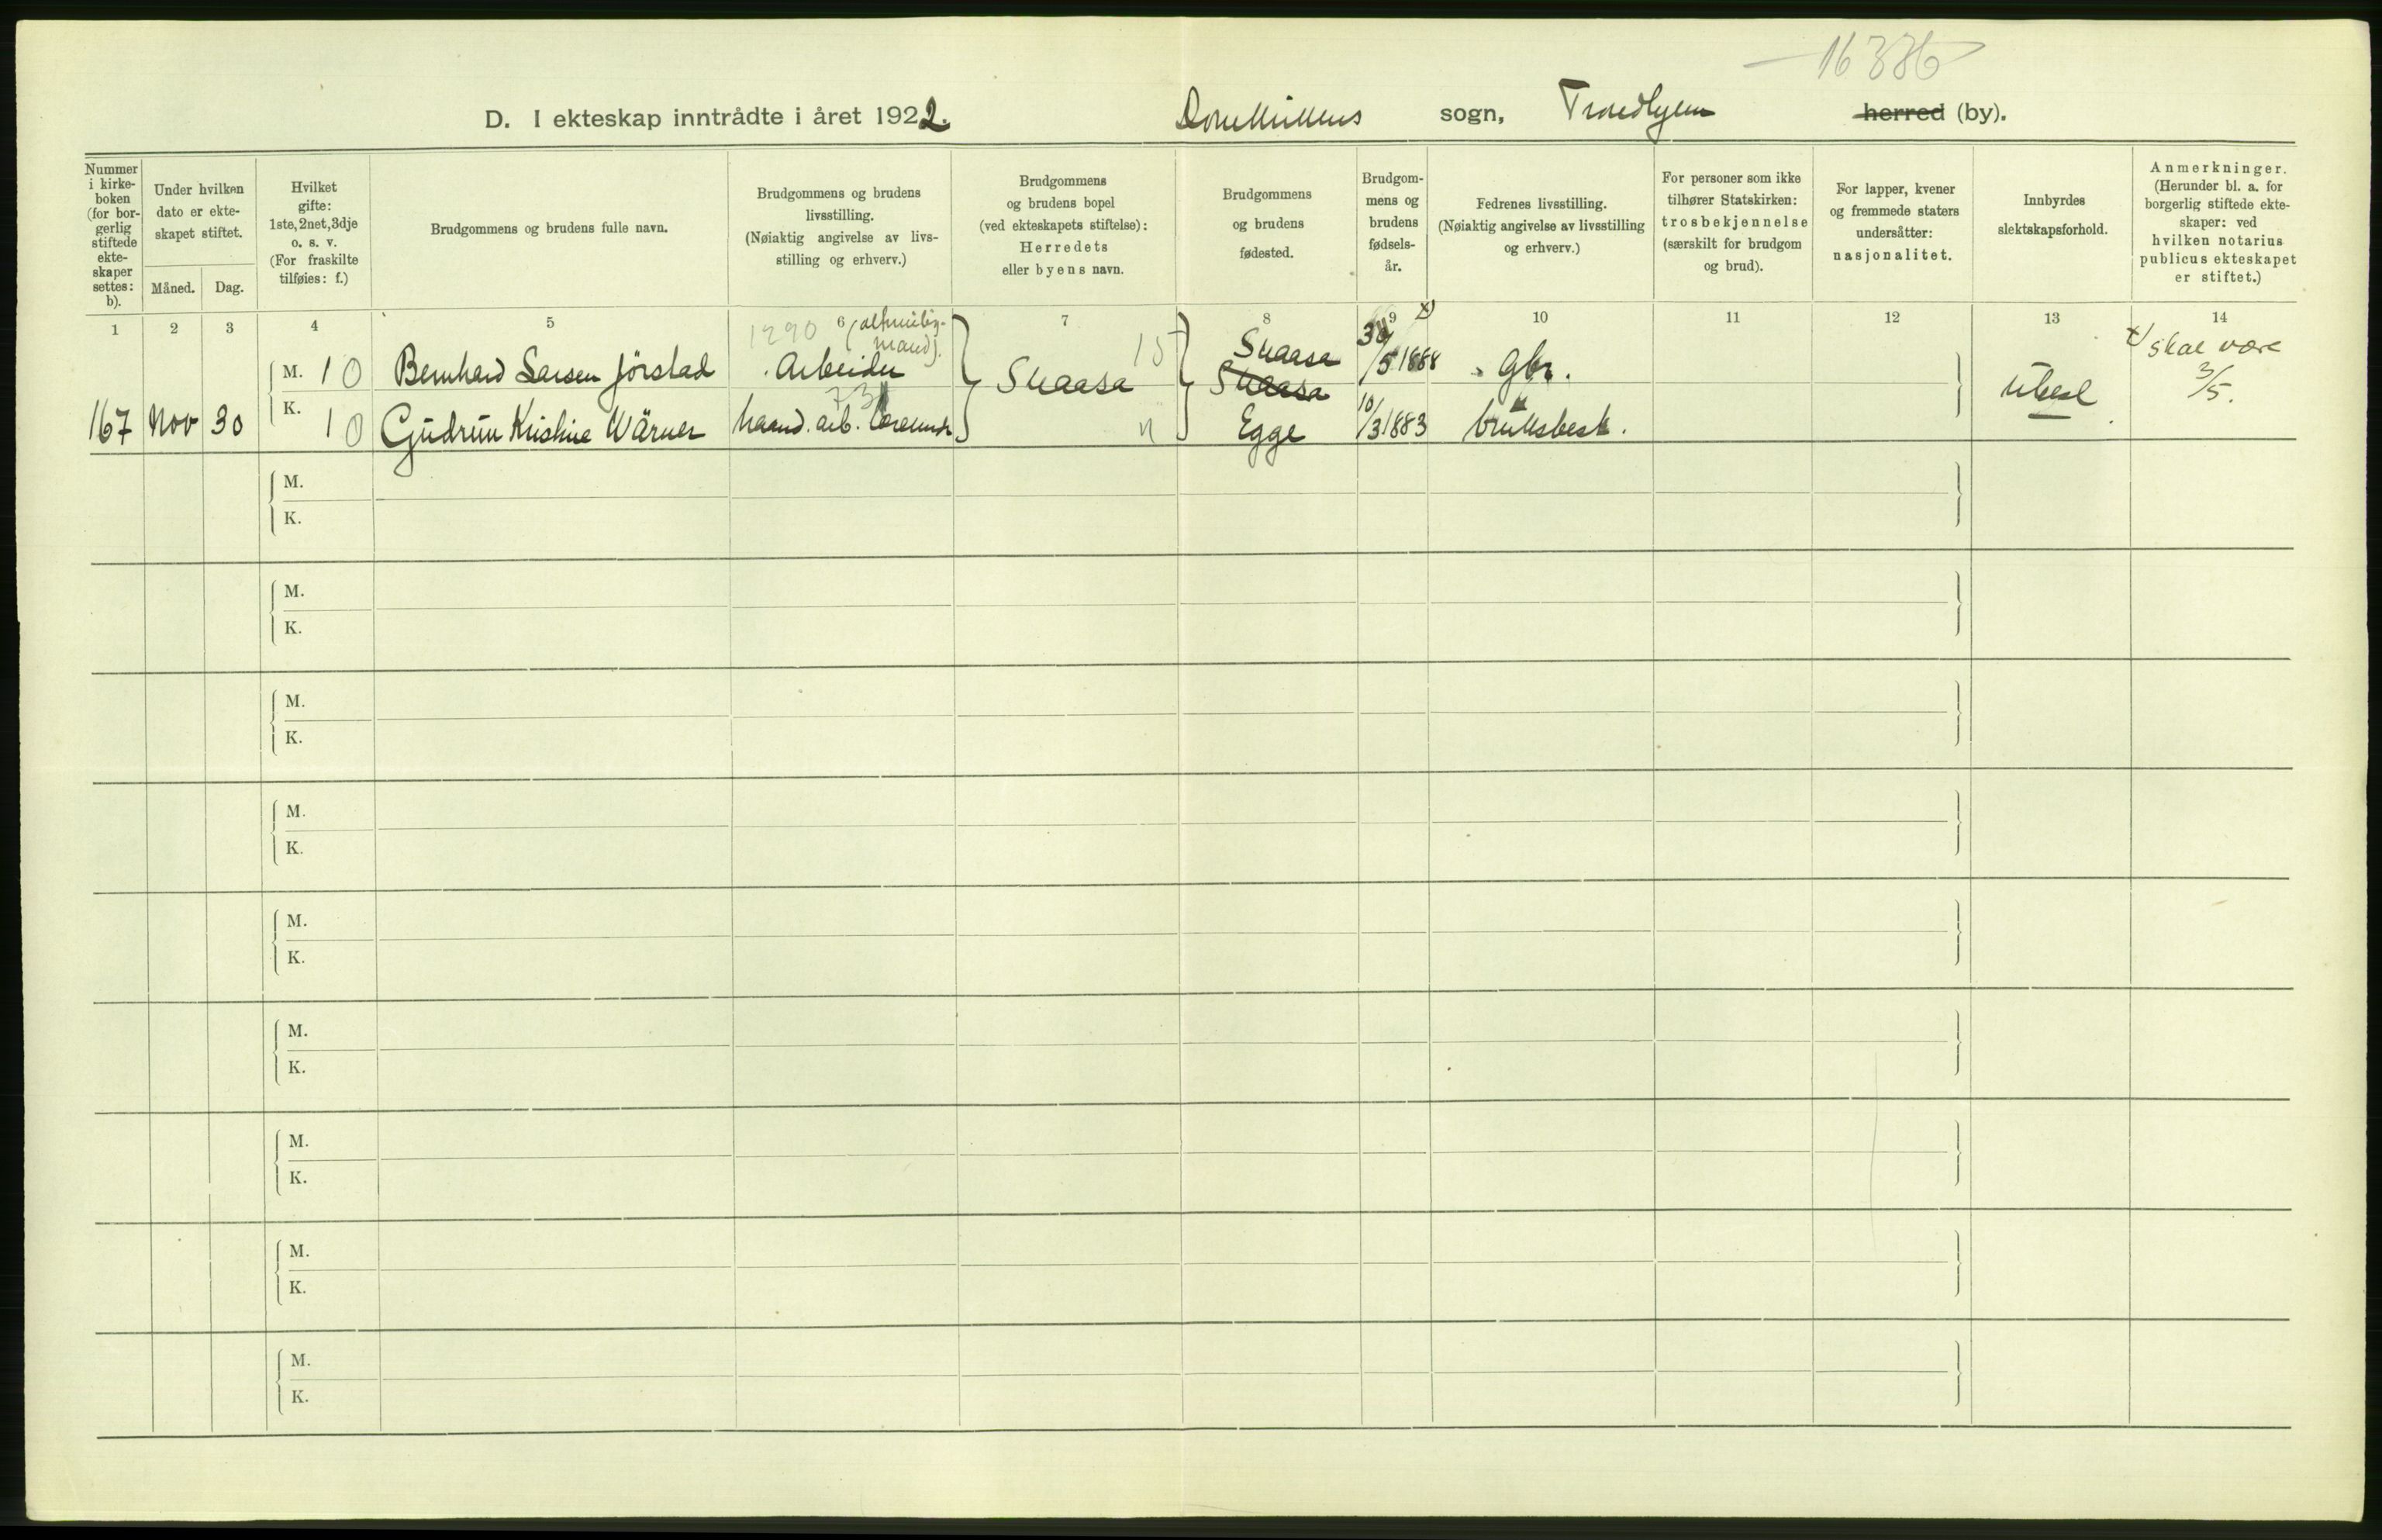 16386
D. I ekteskap inntrådte i året 1922. Domkirkens sogn, Trondhjem herred (by).
Nummer i kirke-boken (for bor-gerlig stiftede ekte-skaper settes: b).
Under hvilken dato er ekte-skapet stiftet.
Måned. Dag.
Hvilket gifte: 1ste, 2net, 3dje o. s. v. (For fraskilte tilføies: f.)
Brudgommens og brudens fulle navn.
Brudgommens og brudens livsstilling. (Nøiaktig angivelse av livs-stilling og erhverv.)
Brudgommens og brudens bopel (ved ekteskapets stiftelse): Herredets eller byens navn.
Brudgommens og brudens fødested.
Brudgom-mens og brudens fødsels-år.
Fedrenes livsstilling. (Nøiaktig angivelse av livsstilling og erhverv.)
For personer som ikke tilhører Statskirken: trosbekjennelse (særskilt for brudgom og brud).
For lapper, kvener og fremmede staters undersåtter: nasjonalitet.
Innbyrdes slektskapsforhold.
Anmerkninger. (Herunder bl. a. for borgerlig stiftede ekte-skaper: ved hvilken notarius publicus ekteskapet er stiftet.)
1 2 3 4 5 6 7 8 9 10 11 12 13 14
1290
M. 1 0 Bernhard Larsen Jörstad Arbeider Snaasa 15 Snaasa Snaasa /5 1888 x) Gbr.
x) skal være 3/5.
73
167 Nov 30 K. 1 0 Gudrun Kristine Wärner haand.arb. n Egge 10/3 1883 bruksbest. ubesl
M.
K.
M.
K.
M.
K.
M.
K.
M.
K.
M.
K.
M.
K.
M.
K.
M.
K.